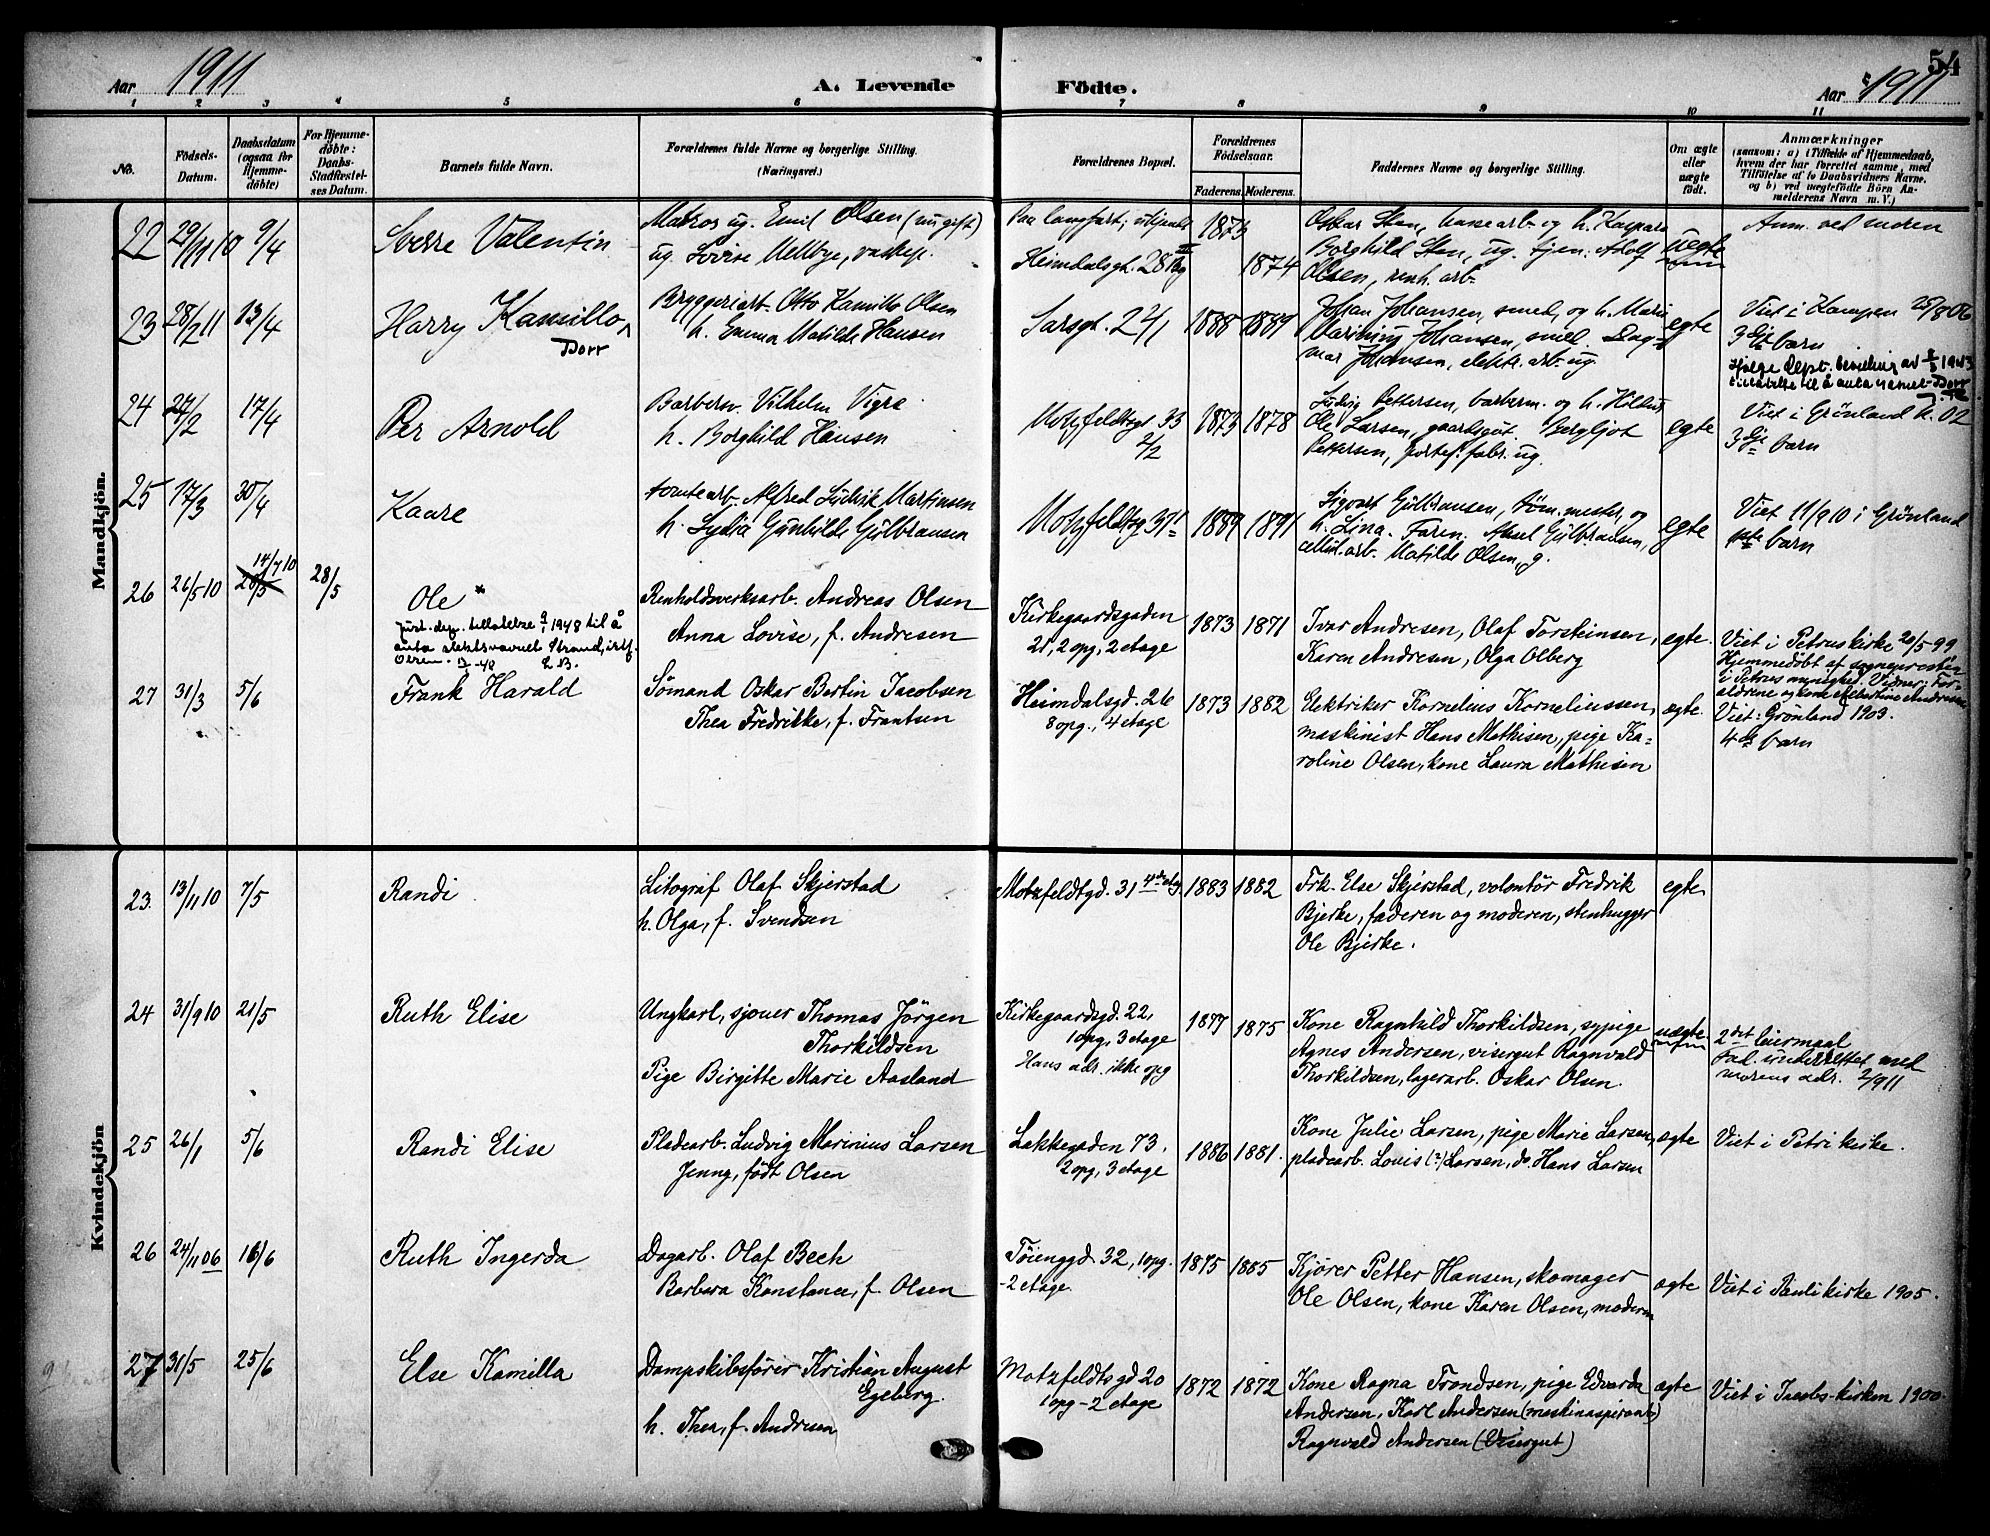 Aar 1911 A. Levende Fødte. Aar 1911 54
1 2 3 4 5 6 7 8 9 10 11
No. Fødsels-Datum. Daabsdatum (ogsaa for Hjemme-døbte) For Hjemme-døbte: Daabs-Stadfæstel-ses Datum. Barnets fulde Navn. Forældrenes fulde Navne og borgerlige Stilling. (Næringsvei.) Forældrenes Bopæl. Forældrenes Fødselsaar. Faderens. Moderens. Faddernes Navne og borgerlige Stilling. Om ægte eller uægte født. Anmærkninger
(saasom: a) i Tilfælde af Hjemmedaab,
hvem der har forrettet samme, med
Tilføielse af to Daabsvidners Navne.
og b) ved uægtefødte Børn An-
melderens Navn m. V.)
Mandkjön.
22 29/11 10 9/4 Sverre Valentin
Matros ug. Emil Olsen (nu gift)
ug. Lovise Mellbye, vaskep.
Paa langfart;
Heimdalsgt. 28
1873 1874
Oskar Sten, og h. Kaspara
Borghild Sten, ug. tjen. Adolf
Olsen, renh. arb.
uegte
Anm. ved moren
23 28/2 11 13/4 Harry Kamillo
Dorr
Bryggeriarb. Otto Kamillo Olsen
h. Emma Matilde Hansen
Sarsgt. 24/1 1888 1889
Johan Johansen, smed, og h. Marie
Marinius Johansen, smed. Dag-
mar Johansen, elektr. arb. ug.
egte
Viet i Kampen 25/8 06
3dje barn
24 27/2 17/4 Per Arnold
Barberm. Vilhelm Vigra
h. Borghild Hansen
Motzfeldtsgt 33
2/2
1873 1878
Ludvig Pettersen, barberm. og h.
Ole Larsen, gaardsgut. Bergljot
Pettersen, portef. fabr. ug.
egte
Viet i Grønland k. 02
3dje barn
25 17/3 30/4 Kaare
tomtearb. Alfred Ludvik Martinsen
h. Lydia Gunhilde Gulbransen
Motzfeldtsg 37 1889 1891
Sigvart Gulbransen, tøm. mester, og
h. Lina. Faren. Aksel Gulbransen,
cellul. arb. Matilde Olsen, g.
egte
Viet 11/9 10 i Grønland
1ste barn
26 26/5 10 14/7 10 28/5 28/5 Ole *
Just. dep. tillatelse 1948 til å
anta slektsnavnet Strand, istf.
Olsen.
Renholdsverksarb. Andreas Olsen
Anna Lovise, f. Andresen
Kirkegaardsgaden
21, 2 opg, 2 etage
1873 1871
Ivar Andresen, Olaf Torsteinsen,
Karen Andresen, Olga Olberg
egte.
Viet i Petruskirke 20/5 99
Hjemmedøbt af sognepresten
i Petrus menighed. Vidner: For-
ældrene og kone Albertine Andresen
27 31/3 5/6 Frank Harald
Sømand Oskar Bertin Jacobsen
Thea Fredrikke, f. Frantsen
Heimdalsgd. 26
8 opg., 4 etage
1873 1882
Elektriker Kornelius Korneliussen,
maskinist Hans Mathisen, pige Ka-
roline Olsen, kone Laura Mathisen
ægte.
Viet: Grønland 1903.
4de barn
Kvindekjön
23. 13/11 10 7/5 Randi
Litograf Olaf Skjerstad
h. Olga, f. Svendsen
Motzfeldtgd. 31 4de etg 1883 1882
Frk. Else Skjerstad, volontör Fredrik
Bjerke, faderen og moderen, stenhugger
Ole Bjerke.
egte
24 31/9 10 21/5 Ruth Elise
Ungkarl, sjouer Thomas Jörgen
Thorkildsen
Pige Birgitte Marie Aasland
Kirkegaardsgd. 22,
1 opg, 3 etage
Hans adr. ikke opg
1877 1875
Kone Ragnhild Thorkildsen, sypige
Agnes Andersen, visergut Ragnvald
Thorkildsen, lagerarb. Oskar Olsen.
uægte
2det leiermaal
Fad. underrettet med
morens adr. 2/9 11
25 26/1 5/6 Randi Elise
Pladearb. Ludvig Marinius Larsen
Jenny, født Olsen
Lakkegaden 73,
2 opg, 3 etage
1886 1881.
Kone Julie Larsen, pige Marie Larsen,
pladearb. Louis (?) Larsen, do. Hans Larsen
ægte
Viet i Petri kirke.
26 24/11 06 16/6 Ruth Ingerda
Dagarb. Olaf Bech
Barbara Konstance, f. Olsen
Töienggd. 32, 1 opg.
-2 etage
1875 1885
Kjører Petter Hansen, skomager
Ole Olsen, kone Karen Olsen, moderen
ægte
Viet i Pauli kirke 1905.
27 31/5 25/6 Else Kamilla
Dampskibsfører Kristian August
Egeberg.
h. Thea, f. Andresen
Motzfeldtsgd 20
1 opg - 2 etage
1872 1872
Kone Ragna Trondsen, pige Edvarda
Andersen, Karl Andersen (maskinaspirant)
Ragnvald Andersen (Visergut)
ægte
Viet i Jacobs-kirken 1900.